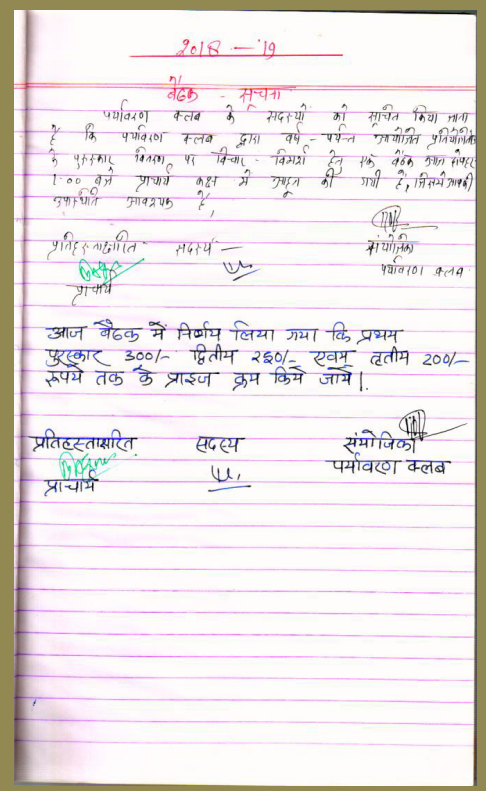 2018 - 19
बैठक - सूचना
पर्यावरण क्लब के सदस्यों को सूचित किया जाता
है कि पर्यावरण क्लब द्वारा वर्ष - पर्यन्त आयोजित प्रतियोगिता
के पुरुस्कार वितरण पर विचार - विमर्श हेतु एक बैठक आज दोपहर
1.00 बजे प्राचार्य कक्ष में आहूत की गयी है, जिसमें आपकी
उपस्थिति आवश्यक है,
प्रतिहस्ताक्षरित सदस्य — संयोजिका
प्राचार्य पर्यावरण क्लब
आज बैठक में निर्णय लिया गया कि प्रथम
पुरस्कार 300/- द्वितीय 250/- एवम तृतीय 200/-
रूपये तक के प्राइज क्रय किये जाये।
प्रतिहस्ताक्षरित सदस्य संयोजिका
प्राचार्य पर्यावरण क्लब